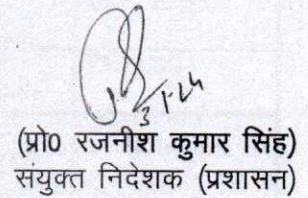 3/1-24
(प्रो0 रजनीश कुमार सिंह)
संयुक्त निदेशक (प्रशासन)